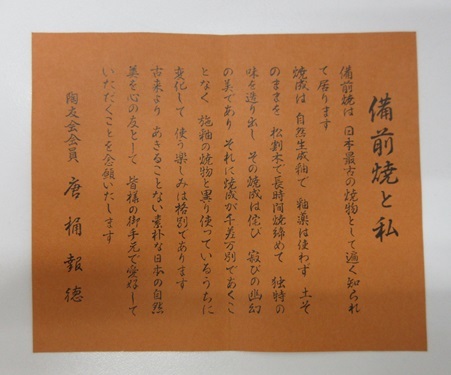 備前焼と私
備前焼は 日本最古の焼物として遍く知られ
て居ります
焼成は 自然生成釉で 釉薬は使わず 土そ
のままを 松割木で長時間焼締めて 独特の
味を造り出し その焼成は侘び 寂びの幽幻
の美であり それに焼成が千差万別であくこ
となく 施釉の焼物と異り使っているうちに
変化して 使う楽しみは格別であります
古来より あきることない素朴な日本の自然
美を心の友として 皆様の御手元で愛好して
いただくことを念願いたします
陶友会会員 唐桶報徳